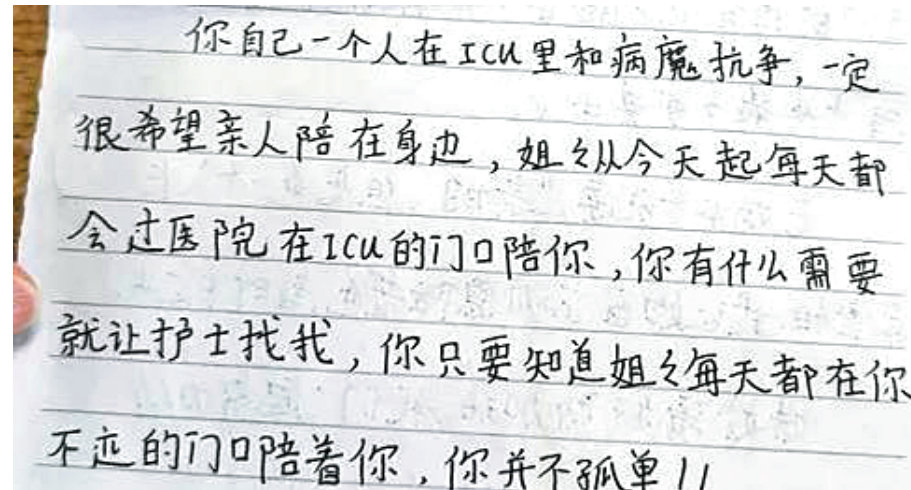 你自己一个人在ICU里和病魔抗争,一定
很希望亲人陪在身边,姐々从今天起每天都
会过医院在ICU的门口陪你,你有什么需要
就让护士找我,你只要知道姐々每天都在你
不远的门口陪着你,你并不孤单!!